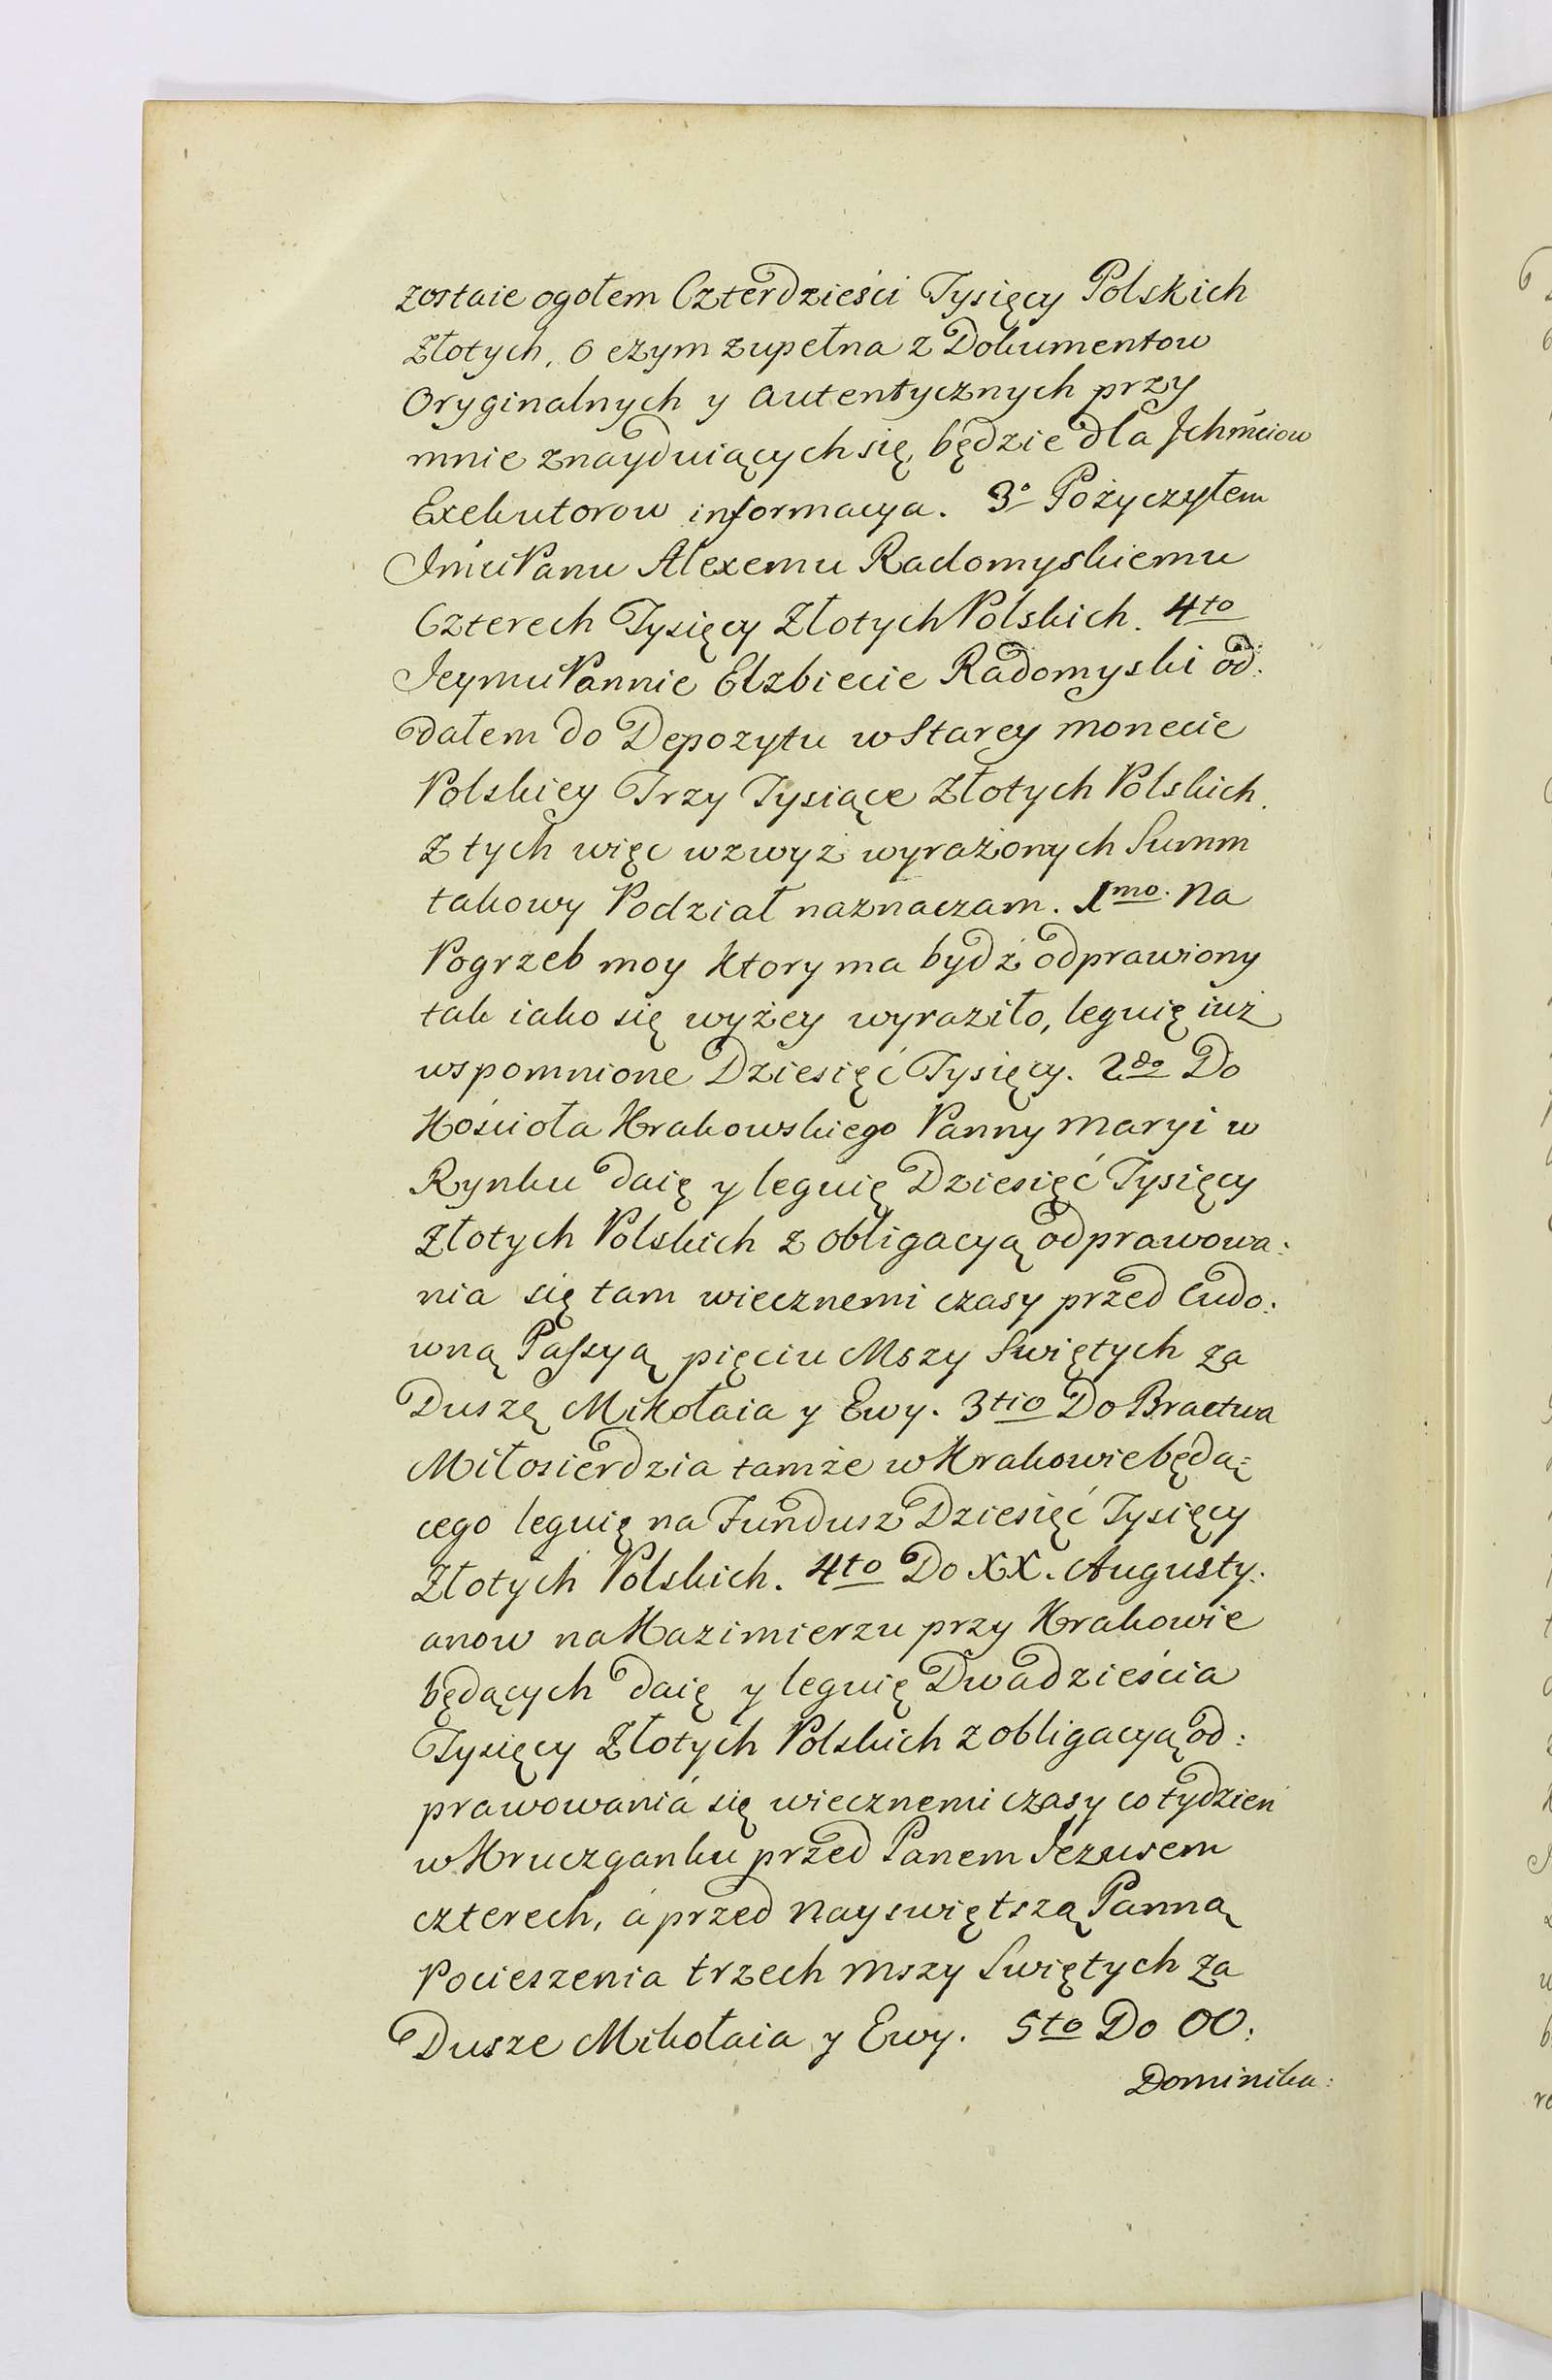 zostaie ogołem Czterdzieści Tysięcy Polskich
Złotych, o czym zupełna z Dokumentow
Oryginalnych y autentycznych przy
mnie znayduiących się będzie dla Jchmciow
Exekutorow informacya. 3o Pożyczyłem
Jmci Panu Alexemu Radomyskiemu
Czterech Tysięcy Złotych Polskich. 4to
Jeymci Pannie Elzbiecie Radomyski od:
dałem do Depozytu w starey monecie
Polskiey Trzy Tysiące Złotych Polskich.
Z tych więc wzwyż wyrażonych Summ
takowy Podział naznaczam. 1mo. Na
Pogrzeb moy ktory ma bydź odprawiony
tak iako się wyżey wyraziło, leguię iuż
wspomnione Dziesięć Tysięcy. 2do Do
Kościoła Krakowskiego Panny Maryi w
Rynku daię y leguię Dziesięć Tysięcy
Złotych Polskich z obligacyą odprawowa:
nia się tam wiecznemi czasy przed Cudo:
wną Passyą pięciu Mszy Swiętych za
Duszę Mikołaia y Ewy. 3tio Do Bractwa
Miłosierdzia tamże w Krakowie będą:
cego leguię na Fundusz Dziesięć Tysięcy
Złotych Polskich. 4to Do XX. Augusty:
anow na Kazimierzu przy Krakowie
będących daię y leguię Dwadzieścia
Tysięcy Złotych Polskich z obligacyą od:
prawowania się wiecznemi czasy co tydzien
w Kruczganku przed Panem Jezusem
czterech, á przed Nayswiętszą Panną
Pocieszenia trzech Mszy Swiętych za
Dusze Mikołaia y Ewy. 5to Do OO:
Dominika: